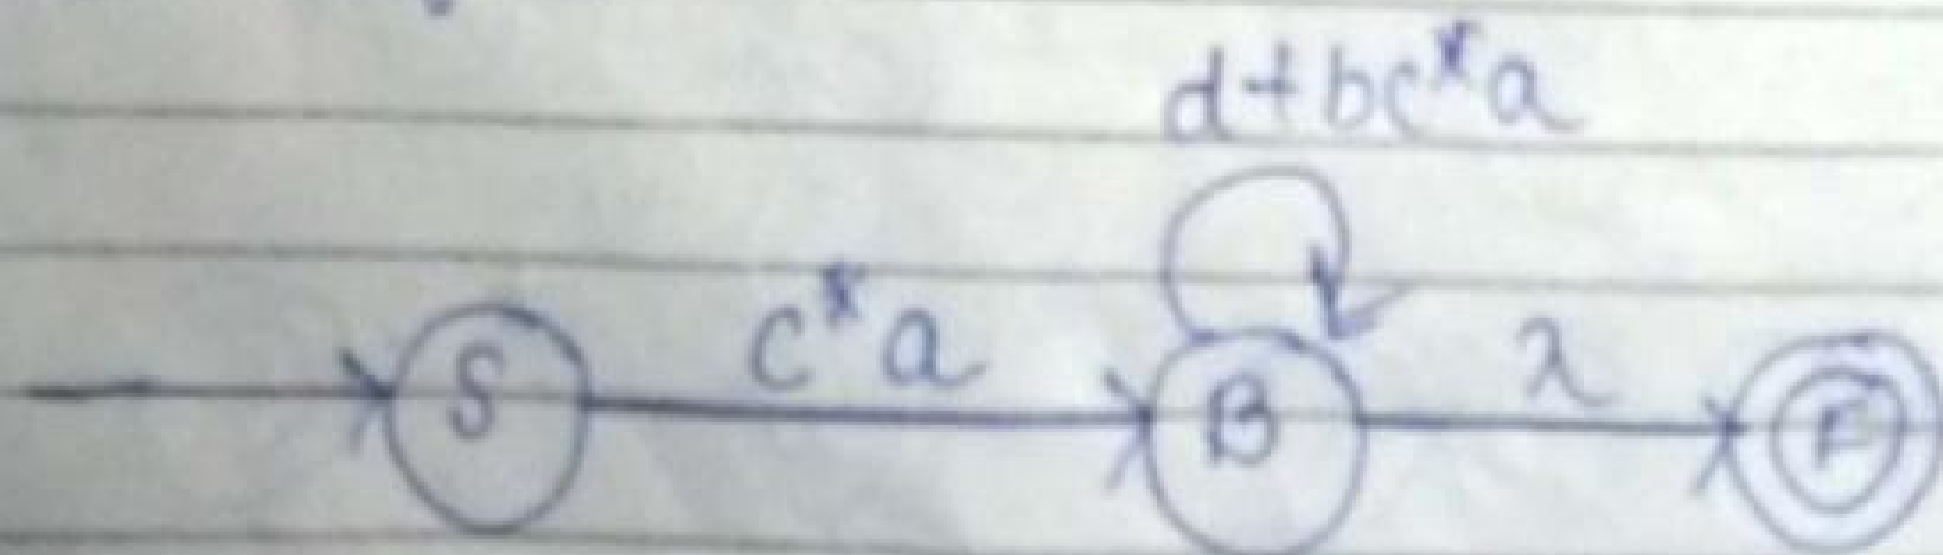 d+bc*a
S c*a B λ F